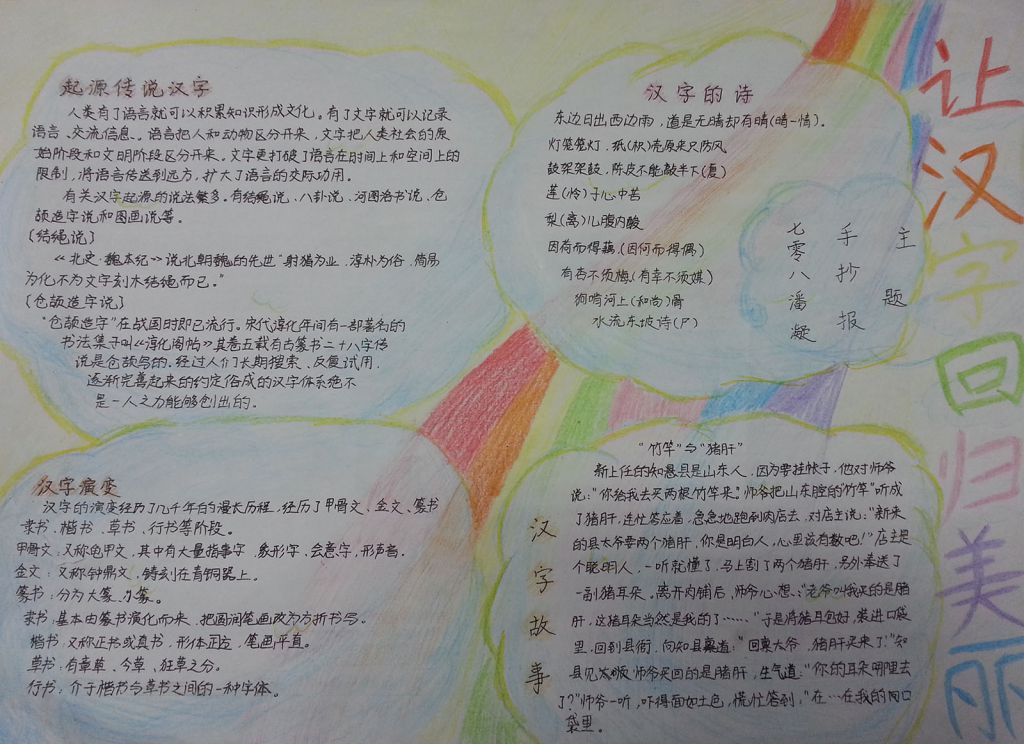 让汉字回归美丽
起源传说汉字
人类有了语言就可以积累知识形成文化。有了文字就可以记录
语言、交流信息、。语言把人和动物区分开来,文字把人类社会的原
始阶段和文明阶段区分开来。文字更打破了语言在时间上和空间上的
限制,将语言传送到远方,扩大了语言的交际功用。
有关汉字起源的说法繁多。有结绳说、八卦说、河图洛书说、仓
颉造字说和图画说等。
〔结绳说〕
《北史·魏本纪》说北朝魏的先世“射猎为业,淳朴为俗,简易
为化不为文字刻木结绳而已。”
〔仓颉造字说〕
“仓颉造字”在战国时即已流行。宋代淳化年间有一部著名的
书法集子叫《淳化阁帖》其卷五载有古篆书二十八字传
说是仓颉写的。经过人们长期搜索、反复试用、
逐渐完善起来的约定俗成的汉字体系绝不
是一人之力能够创出的。
汉字的诗
东边日出西边雨,道是无晴却有晴(晴—情)。
灯笼笼灯,纸(枳)壳原来只防风
鼓架架鼓,陈皮不能敲半下(夏)
莲(怜)子心中苦
梨(离)儿腹内酸
因荷而得藕,(因何而得偶)
有杏不须梅,(有幸不须媒)
狗啃河上(和尚)骨
水流东坡诗(尸)
主题
手抄报
七零八潘凝
汉字演变
汉字的演变经历了几千年的漫长历程,经历了甲骨文、金文、篆书
隶书、楷书、草书、行书等阶段。
甲骨文:又称龟甲文,其中有大量指事字、象形字、会意字、形声字.
金文:又称钟鼎文,铸刻在青铜器上。
篆书:分为大篆、小篆。
隶书:基本由篆书演化而来,把圆润笔画改为方折书写。
楷书:又称正书或真书,形体正方,笔画平直。
草书:有章草、今草、狂草之分。
行书:介于楷书与草书之间的一种字体。
汉字故事
“竹竿”与“猪肝”
新上任的知县是山东人,因为要挂帐子,他对师爷
说:“你给我去买两根竹竿来。”师爷把山东腔的“竹竿”听成
了猪肝,连忙答应着,急急地跑到肉店去,对店主说:“新来
的县太爷要两个猪肝,你是明白人,心里该有数吧!”店主是
个聪明人,一听就懂了,马上割了两个猪肝,另外奉送了
一副猪耳朵。离开肉铺后,师爷心想:“老爷叫我买的是猪
肝,这猪耳朵当然是我的了……”于是将猪耳包好,装进口袋
里,回到县衙,向知县禀道:“回禀太爷,猪肝买来了!”知
县见师爷买回的是猪肝,生气道:“你的耳朵哪里去
了?”师爷一听,吓得面如土色,慌忙答到:“在…在我的口
袋里。